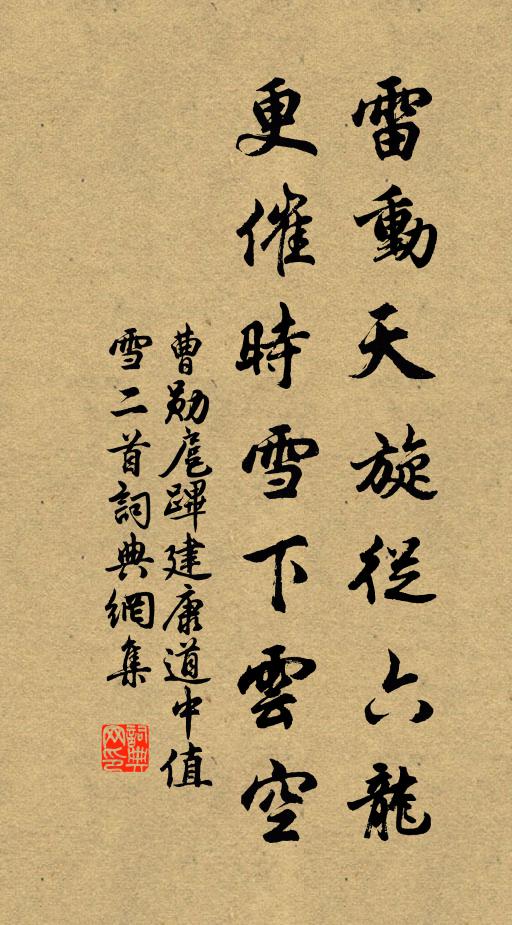 雷動天旋從六龍
更催時雪下雲空
曹勛扈蹕建康道中值
雪二首詞典網集
詞典
网印